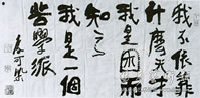 我不依靠
什麼天才
我是困而
知之
我是一個
苦學派
可染